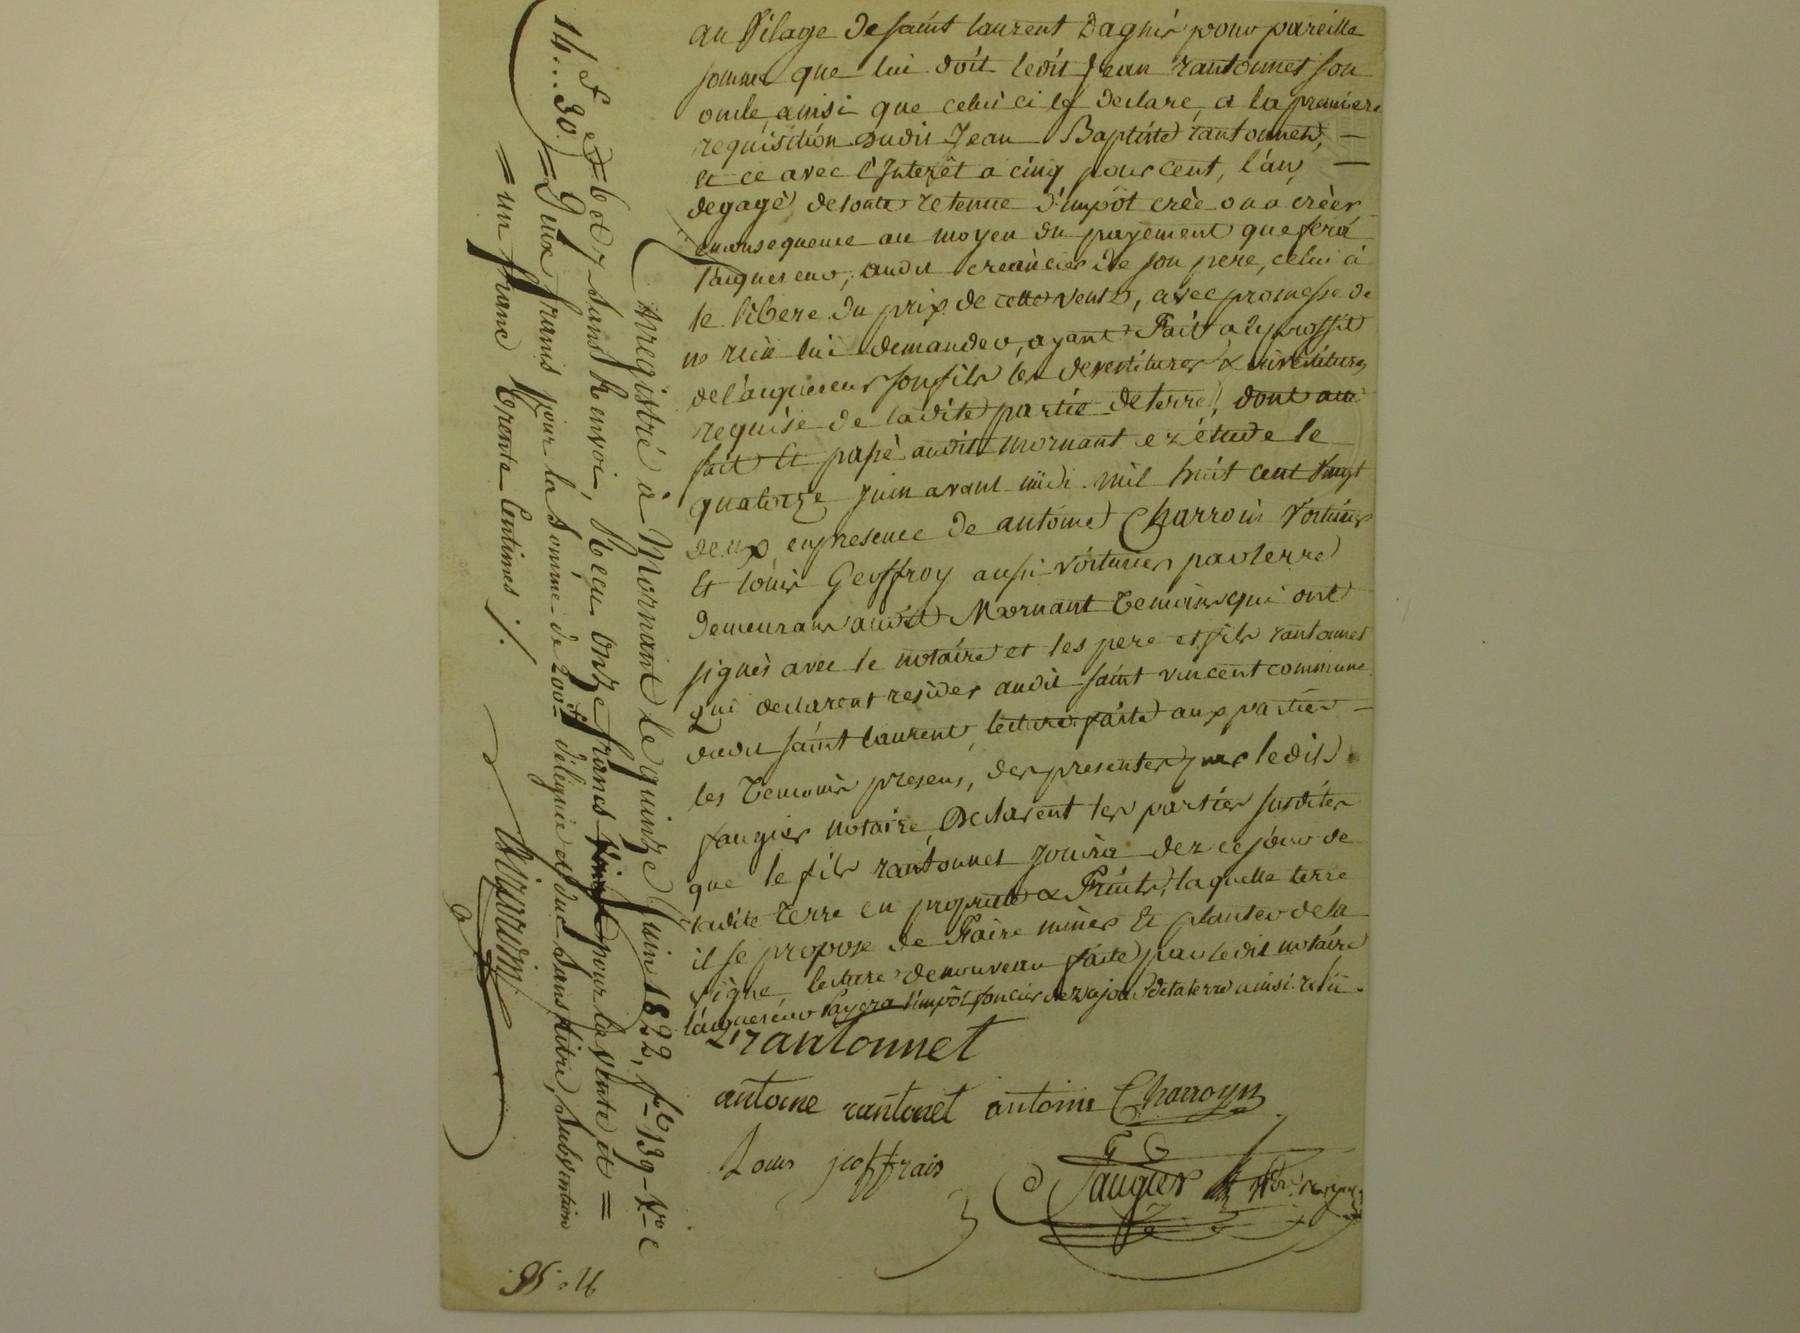 au vilage de saint laurent Dagnis pour pareille
somme que lui doit ledit Jean rantonnet son
oncle, ainsi que celui ci le declare, a la premiere
requisition dudit Jean Baptiste rantonnet, —
et ce avec l'Interêt a cinq pour cent, l'an, —
degagé de toute retenue d'impôt créé ou a créer
enconsequence au moyen du payement que fera
l'aquereur, audit creancier de son pere, celui à
le libere du prix de cette vente, avec promesse de
ne rien lui demander, ayant Fait a le proffit
de l'aquereur son fils les devestitures & investitures
requise de la dite partie de terre, dont acte
fait Et passé audit Mornant ez étude le
quatorze Juin avant midi mil huit cent vingt
deux, en presence de antoine Charroin voiturier
Et louis Geoffroy aussi voiturier par terre
demeurans audit Mornant temoins qui ont
signés avec le notaire et les pere et fils rantonnet
qui declarent resider audit saint vincent commune
dudit saint laurent, lecture faite aux parties —
les temoins presens, des presentes par ledit
faugier notaire, Declarent les parties susdites
que le fils rantonnet jouira dez ce jour de
ladite terre en propriété & Fruits, laquelle terre
il se propose de Faire miner Et planter de la
vigne, lecture denouveau faite par ledit notaire
l'aquereur Payera l'impôt foncier dez ce jour de la terre ainsi relu.
rantonnet
antoine rantonet antoine Charroyn
Louis joffrais
Faugier
Enregistré à Mornant le quinze Juin 1822, f° 139 V° c
6 et 7 sans Renvoi, Reçu onze francs pour la vente et =
14... 30. = Deux francs pour la somme de 200f déléguée et due sans titre, subvention
= un franc trente Centimes /.